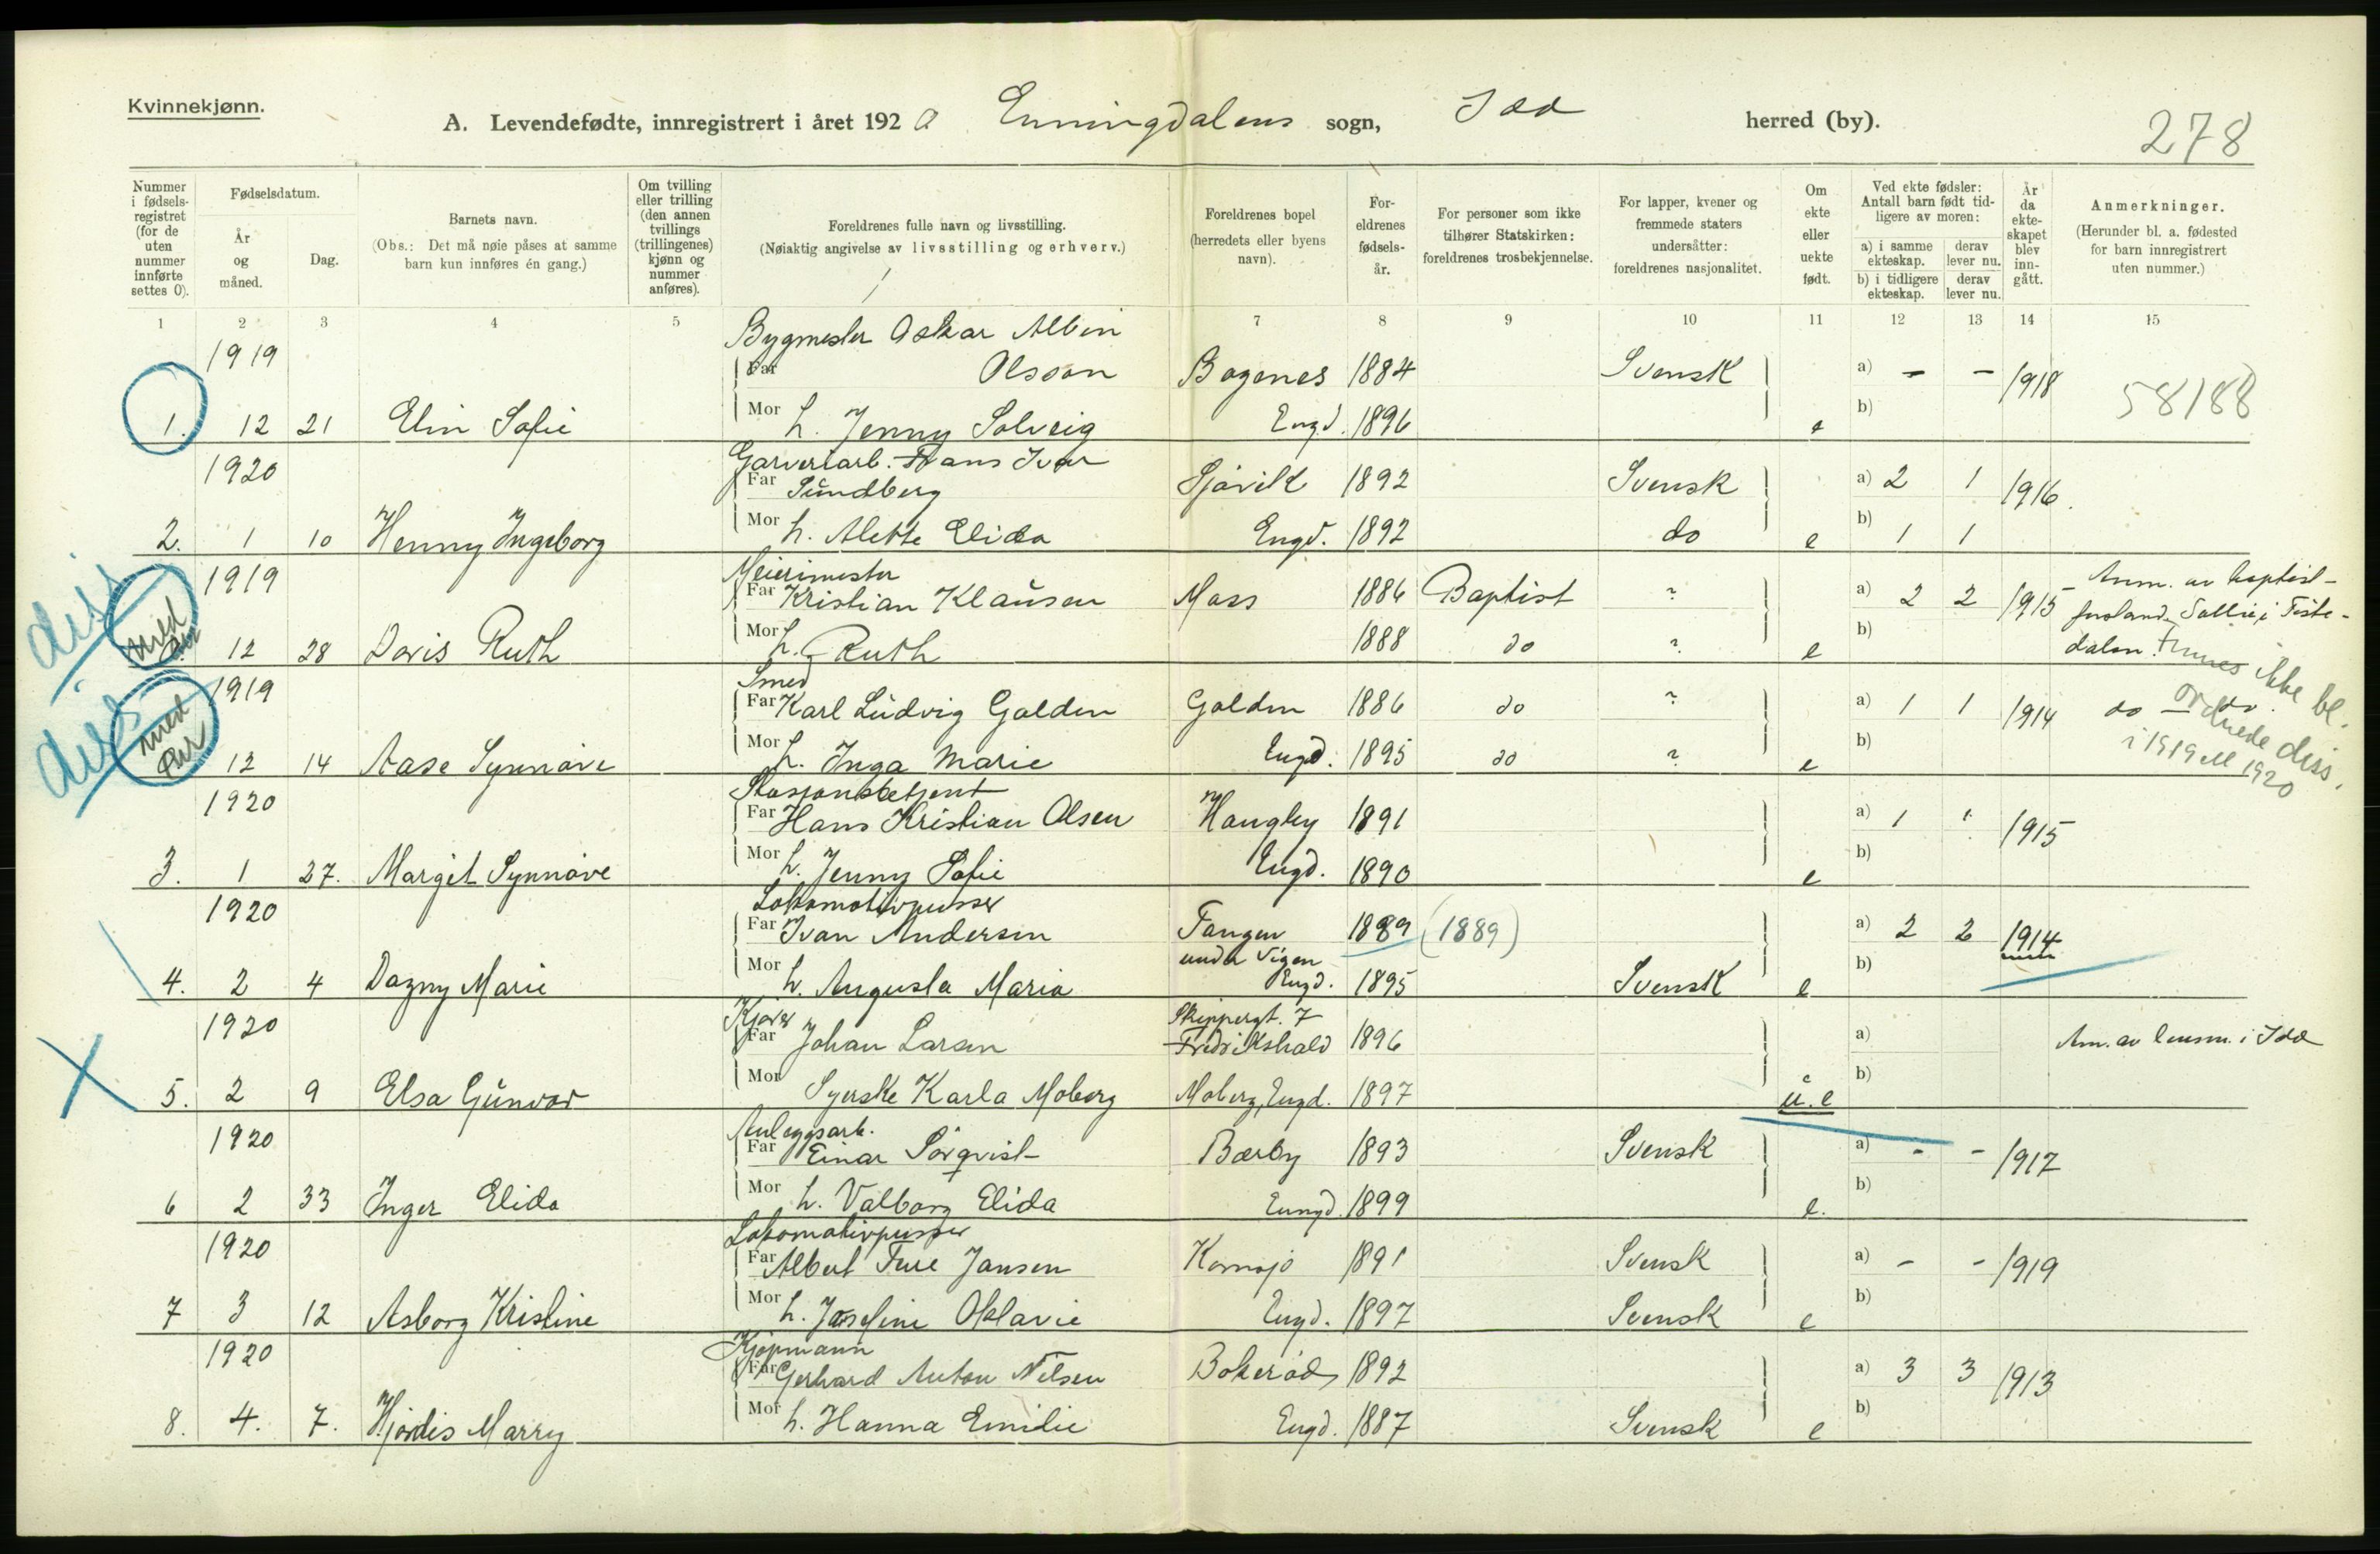 Kvinnekjønn.
A. Levendefødte, innregistrert i året 1920 Enningdalens sogn, Idd herred (by).
278
Nummer i fødsels-registret (for de uten nummer innførte settes 0).
Fødselsdatum.
År og måned.
Dag.
Barnets navn.
(Obs.: Det må nøie påses at samme barn kun innføres én gang.)
Om tvilling eller trilling (den annen tvillings (trillingenes) kjønn og nummer anføres).
Foreldrenes fulle navn og livsstilling.
(Nøiaktig angivelse av livsstilling og erhverv.)
Foreldrenes bopel (herredets eller byens navn).
For-eldrenes fødsels-år.
For personer som ikke tilhører Statskirken: foreldrenes trosbekjennelse.
For lapper, kvener og fremmede staters undersåtter: foreldrenes nasjonalitet.
Om ekte eller uekte født.
Ved ekte fødsler: Antall barn født tid-ligere av moren:
a) i samme ekteskap. derav lever nu.
b) i tidligere ekteskap. derav lever nu.
År da ekte-skapet blev inn-gått.
Anmerkninger.
(Herunder bl. a. fødested for barn innregistrert uten nummer.)
1 2 3 4 5 7 8 9 10 11 12 13 14 15
Bygmester Oskar Albin
1919 Far Olsson Bogenes 1884 Svensk a) - - 1918 58/88
1. 12 21 Elin Sofie Mor h. Jenny Solveig Engd. 1896 e b)
Garveriarb. Frans Ivar
1920 Far Sundberg Sjøvik 1892 Svensk a) 2 1 1916.
2. 1 10 Henny Ingeborg Mor h. Alette Elida Engd. 1892 do e b) 1 1
Meierimester
1919 Far Kristian Klausen Moss 1886 Baptist ? a) 2 2 1915 Anm. av baptist-
diss med 12 28 Doris Ruth Mor h. Ruth 1888 do ? e b) i Tiste-
dalen. Finnes ikke bl.
Smed
1919 Far Karl Ludvig Golden Golden 1886 do ? a) 1 1 1914 do - do.
ordnede diss.
i 1919 el 1920
diss med 12 14 Aase Synnøve Mor h. Inga Marie Engd. 1895 do ? e b)
Stasjonsbetjent
1920 Far Hans Kristian Olsen Haugby 1891 a) 1 1 1915
3. 1 27. Margit Synnøve Mor h. Jenny Sofie Engd. 1890 e b)
Lokomotivpusser
1920 Far Ivan Andersen Tangen 1889 (1889) a) 2 2 1914
under Vigen
4. 2 4 Dagny Marie Mor h. Augusta Maria Engd. 1895 Svensk e b)
Kjører Skippergt. 7
1920 Far Johan Larsen Fredrikshald 1896 a) Anm. av lensm. i Idd
5. 2 9 Elsa Gunvor Mor Syerske Karla Moberg Moberg, Engd. 1897 u. e b)
Anleggsarb.
1920 Far Einar Sørqvist Bærby 1893 Svensk a) - - 1917
6 2 33 Inger Elida Mor h. Valborg Elida Enngd. 1899 e. b)
Lokomotivpusser
1920 Far Albert Ture Jansen Kornsjø 1891 Svensk a) - - 1919
7 3 12 Asborg Kristine Mor h. Josefine Oktavie Engd. 1897 Svensk e b)
Kjøpmann
1920 Far Gerhard Anton Nilsen Bokerød 1892 a) 3 3 1913
8. 4. 7. Hjørdis Marry Mor h. Hanna Emilie Engd. 1887 Svensk e b)